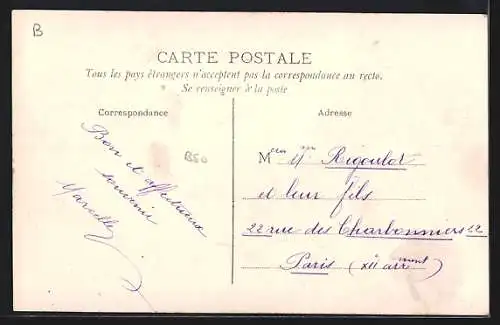 B
CARTE POSTALE
Tous les pays étrangers n'acceptent pas la correspondance au recto.
Se renseigner à la poste
Correspondance
Adresse
Bon et affectueux
souvenir
Marcelle
B50
Rigoulot
et leur fils
22 rue des Charbonniers 22
Paris (XII arrment)